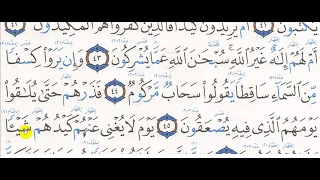 يَكْتُبُونَ ٤١ أَمْ يُرِيدُونَ كَيْدًا فَالَّذِينَ كَفَرُوا هُمُ الْمَكِيدُونَ ٤٢
أَمْ لَهُمْ إِلَٰهٌ غَيْرُ اللَّهِ سُبْحَٰنَ اللَّهِ عَمَّا يُشْرِكُونَ ٤٣ وَإِن يَرَوْا كِسْفًا
مِّنَ السَّمَاءِ سَاقِطًا يَقُولُوا سَحَابٌ مَّرْكُومٌ ٤٤ فَذَرْهُمْ حَتَّىٰ يُلَٰقُوا
يَوْمَهُمُ الَّذِي فِيهِ يُصْعَقُونَ ٤٥ يَوْمَ لَا يُغْنِي عَنْهُمْ كَيْدُهُمْ شَيْـًٔا